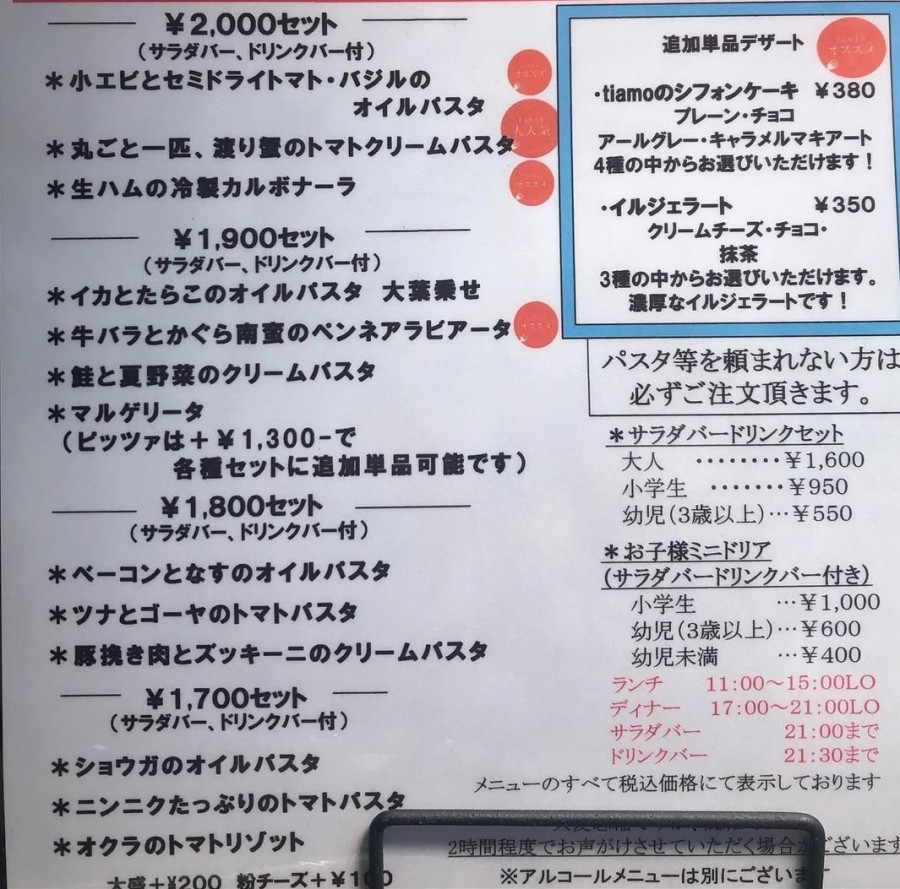 ¥2,000セット
(サラダバー、ドリンクバー付)
＊小エビとセミドライトマト・バジルの
オイルパスタ
オススメ
＊丸ごと一匹、渡り蟹のトマトクリームパスタ
大人気
＊生ハムの冷製カルボナーラ
オススメ
¥1,900セット
(サラダバー、ドリンクバー付)
＊イカとたらこのオイルパスタ 大葉乗せ
＊牛バラとかぐら南蛮のペンネアラビアータ
オススメ
＊鮭と夏野菜のクリームパスタ
＊マルゲリータ
(ピッツァは＋¥1,300-で
各種セットに追加単品可能です)
¥1,800セット
(サラダバー、ドリンクバー付)
＊ベーコンとなすのオイルパスタ
＊ツナとゴーヤのトマトパスタ
＊豚挽き肉とズッキーニのクリームパスタ
¥1,700セット
(サラダバー、ドリンクバー付)
＊ショウガのオイルパスタ
＊ニンニクたっぷりのトマトパスタ
＊オクラのトマトリゾット
大盛＋¥200 粉チーズ＋¥100
追加単品デザート
オススメ
・tiamoのシフォンケーキ ¥380
プレーン・チョコ
アールグレー・キャラメルマキアート
4種の中からお選びいただけます！
・イルジェラート ¥350
クリームチーズ・チョコ・
抹茶
3種の中からお選びいただけます。
濃厚なイルジェラートです！
パスタ等を頼まれない方は
必ずご注文頂きます。
＊サラダバードリンクセット
大人 ········¥1,600
小学生 ·······¥950
幼児(3歳以上)…¥550
＊お子様ミニドリア
(サラダバードリンクバー付き)
小学生 …¥1,000
幼児(3歳以上)…¥600
幼児未満 …¥400
ランチ 11:00～15:00LO
ディナー 17:00～21:00LO
サラダバー 21:00まで
ドリンクバー 21:30まで
メニューのすべて税込価格にて表示しております
2時間程度でお声がけさせていただく場合がございます
※アルコールメニューは別にございます